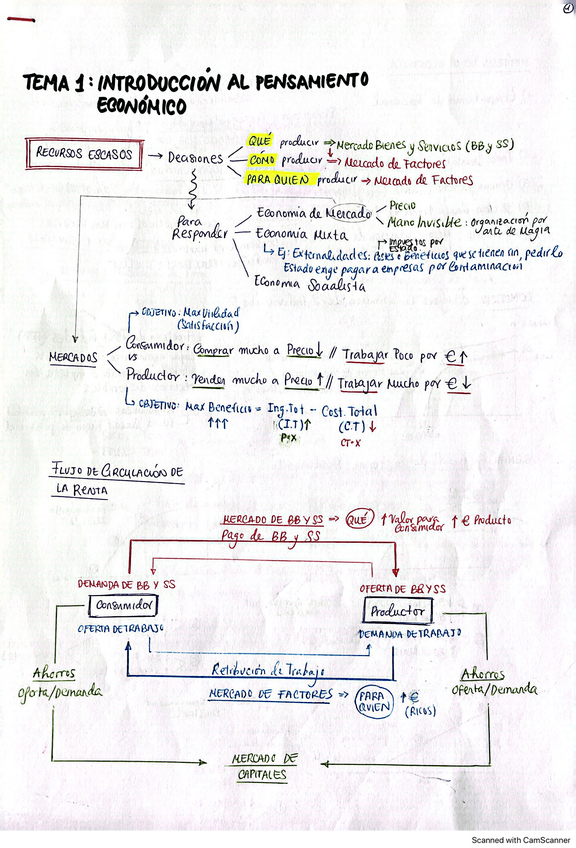 1
TEMA 1: INTRODUCCIÓN AL PENSAMIENTO
ECONÓMICO
RECURSOS ESCASOS → Decisiones
QUÉ producir ⇒ Mercado Bienes y Servicios (BB y SS)
CÓMO producir → Mercado de Factores
PARA QUIEN producir → Mercado de Factores
Para
Responder
Economía de Mercado
Precio
Mano Invisible: organización por
"arte de Magia
Economía Mixta
Impuestos por
Estado
Ej: Externalidades: Costes o Beneficios que se tienen sin pedirlo
Estado exige pagar a empresas por Contaminación
Economía Socialista
OBJETIVO: Max Utilidad
(Satisfacción)
MERCADOS
Consumidor: Comprar mucho a Precio ↓ // Trabajar Poco por € ↑
vs
Productor: Vender mucho a Precio ↑ // Trabajar Mucho por € ↓
OBJETIVO: Max Beneficio = Ing. Tot - Cost. Total
↑↑↑ (I.T) ↑ (C.T) ↓
P•X CT•X
FLUJO DE CIRCULACIÓN DE
LA RENTA
MERCADO DE BB Y SS ⇒ QUÉ ↑ Valor para
Consumidor ↑ € Producto
Pago de BB y SS
DEMANDA DE BB Y SS
OFERTA DE BB Y SS
Consumidor
Productor
OFERTA DE TRABAJO
DEMANDA DE TRABAJO
Retribución de Trabajo
Ahorros
Oferta/Demanda
Ahorros
Oferta/Demanda
MERCADO DE FACTORES ⇒ PARA
QUIEN ↑ €
(RICOS)
MERCADO DE
CAPITALES
Scanned with CamScanner